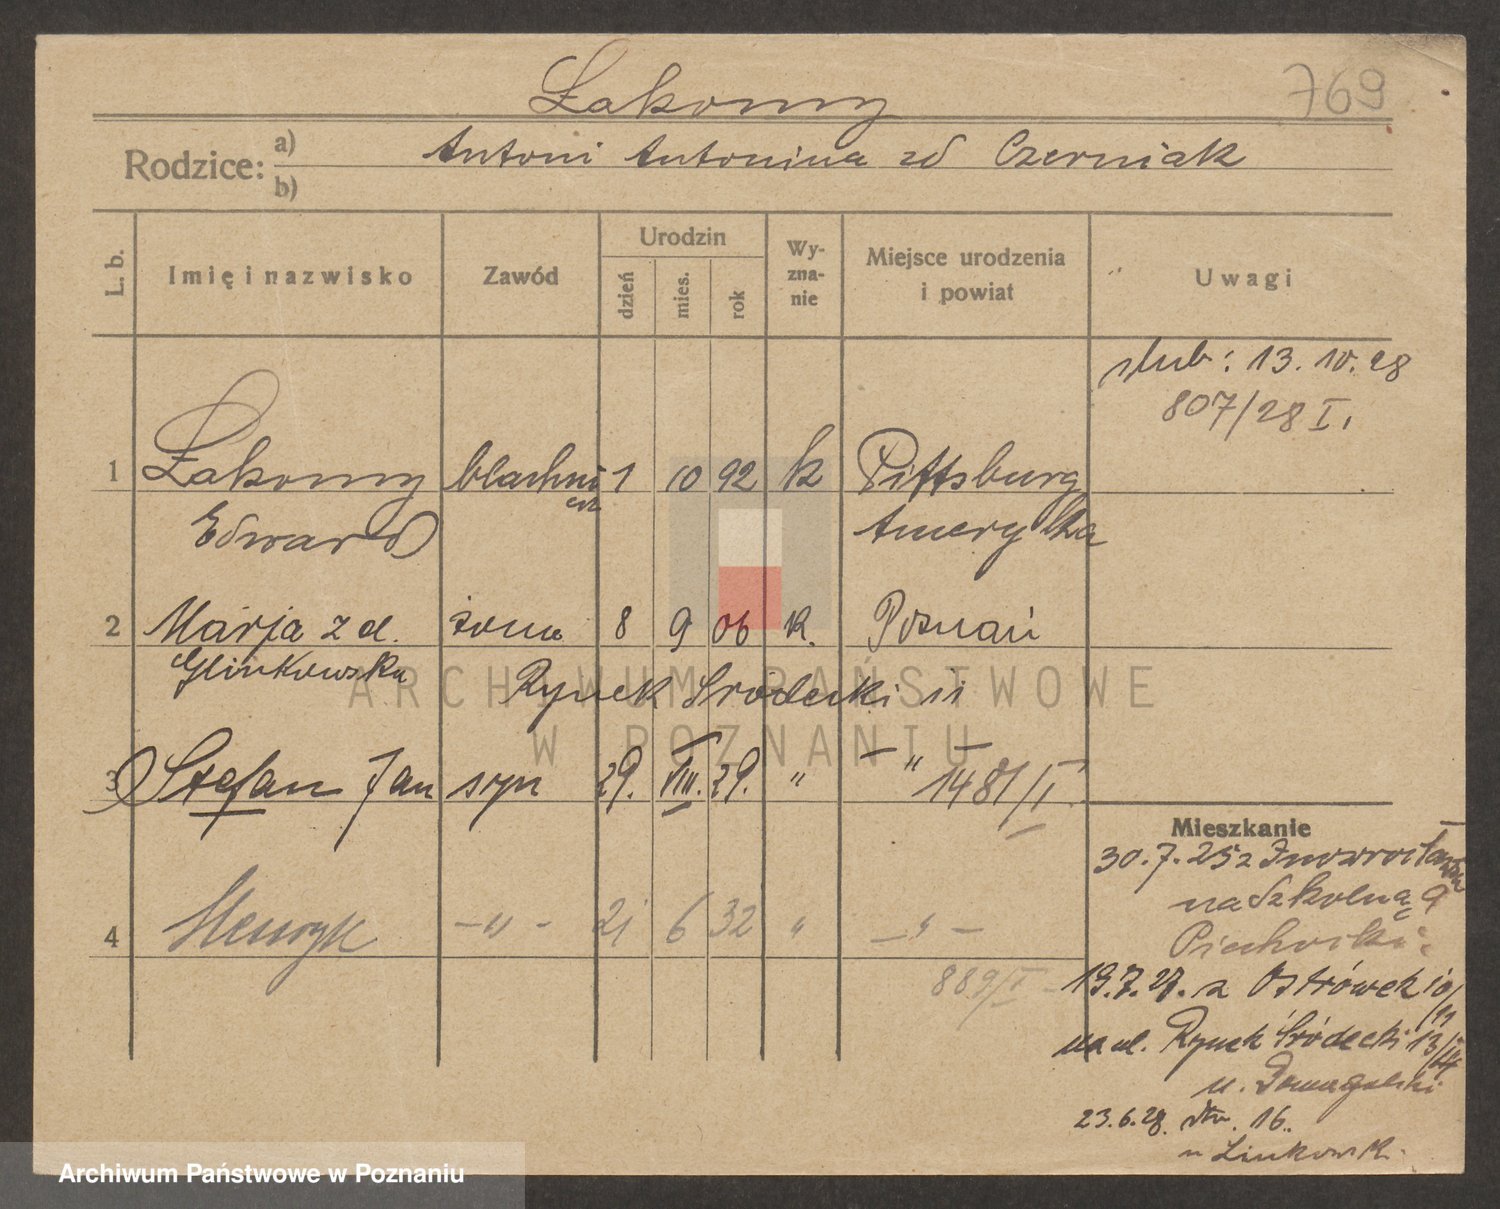 Łakomy
769
Rodzice: a) Antoni Antonina zd Czerniak
b)
L. b.
Imię i nazwisko
Zawód
Urodzin
dzień
mies.
rok
Wy-
zna-
nie
Miejsce urodzenia
i powiat
Uwagi
ślub: 13. 10. 28
807/28 I.
1 Łakomy blachni 1 10 92 k Pittsburg
erz
Edward Ameryka
2 Marja z d. żona 8 9 06 k. Poznań
Glinkowska
Rynek Śródecki 11
ARCHIWUM PAŃSTWOWE
W POZNANIU
3 Stefan Jan syn 29. VIII. 29. " — " —
1481/I
Mieszkanie
30.7.25 z Inowrocławia
na Szkolną 9
4 Henryk —"— 21 6 32 " —"—
889/I
19.7.27. z Ostrówek 10/
na ul. Rynek Śródecki 13/
u. Domagalski
23.6.28. 16.
u Linkowsk.
Archiwum Państwowe w Poznaniu